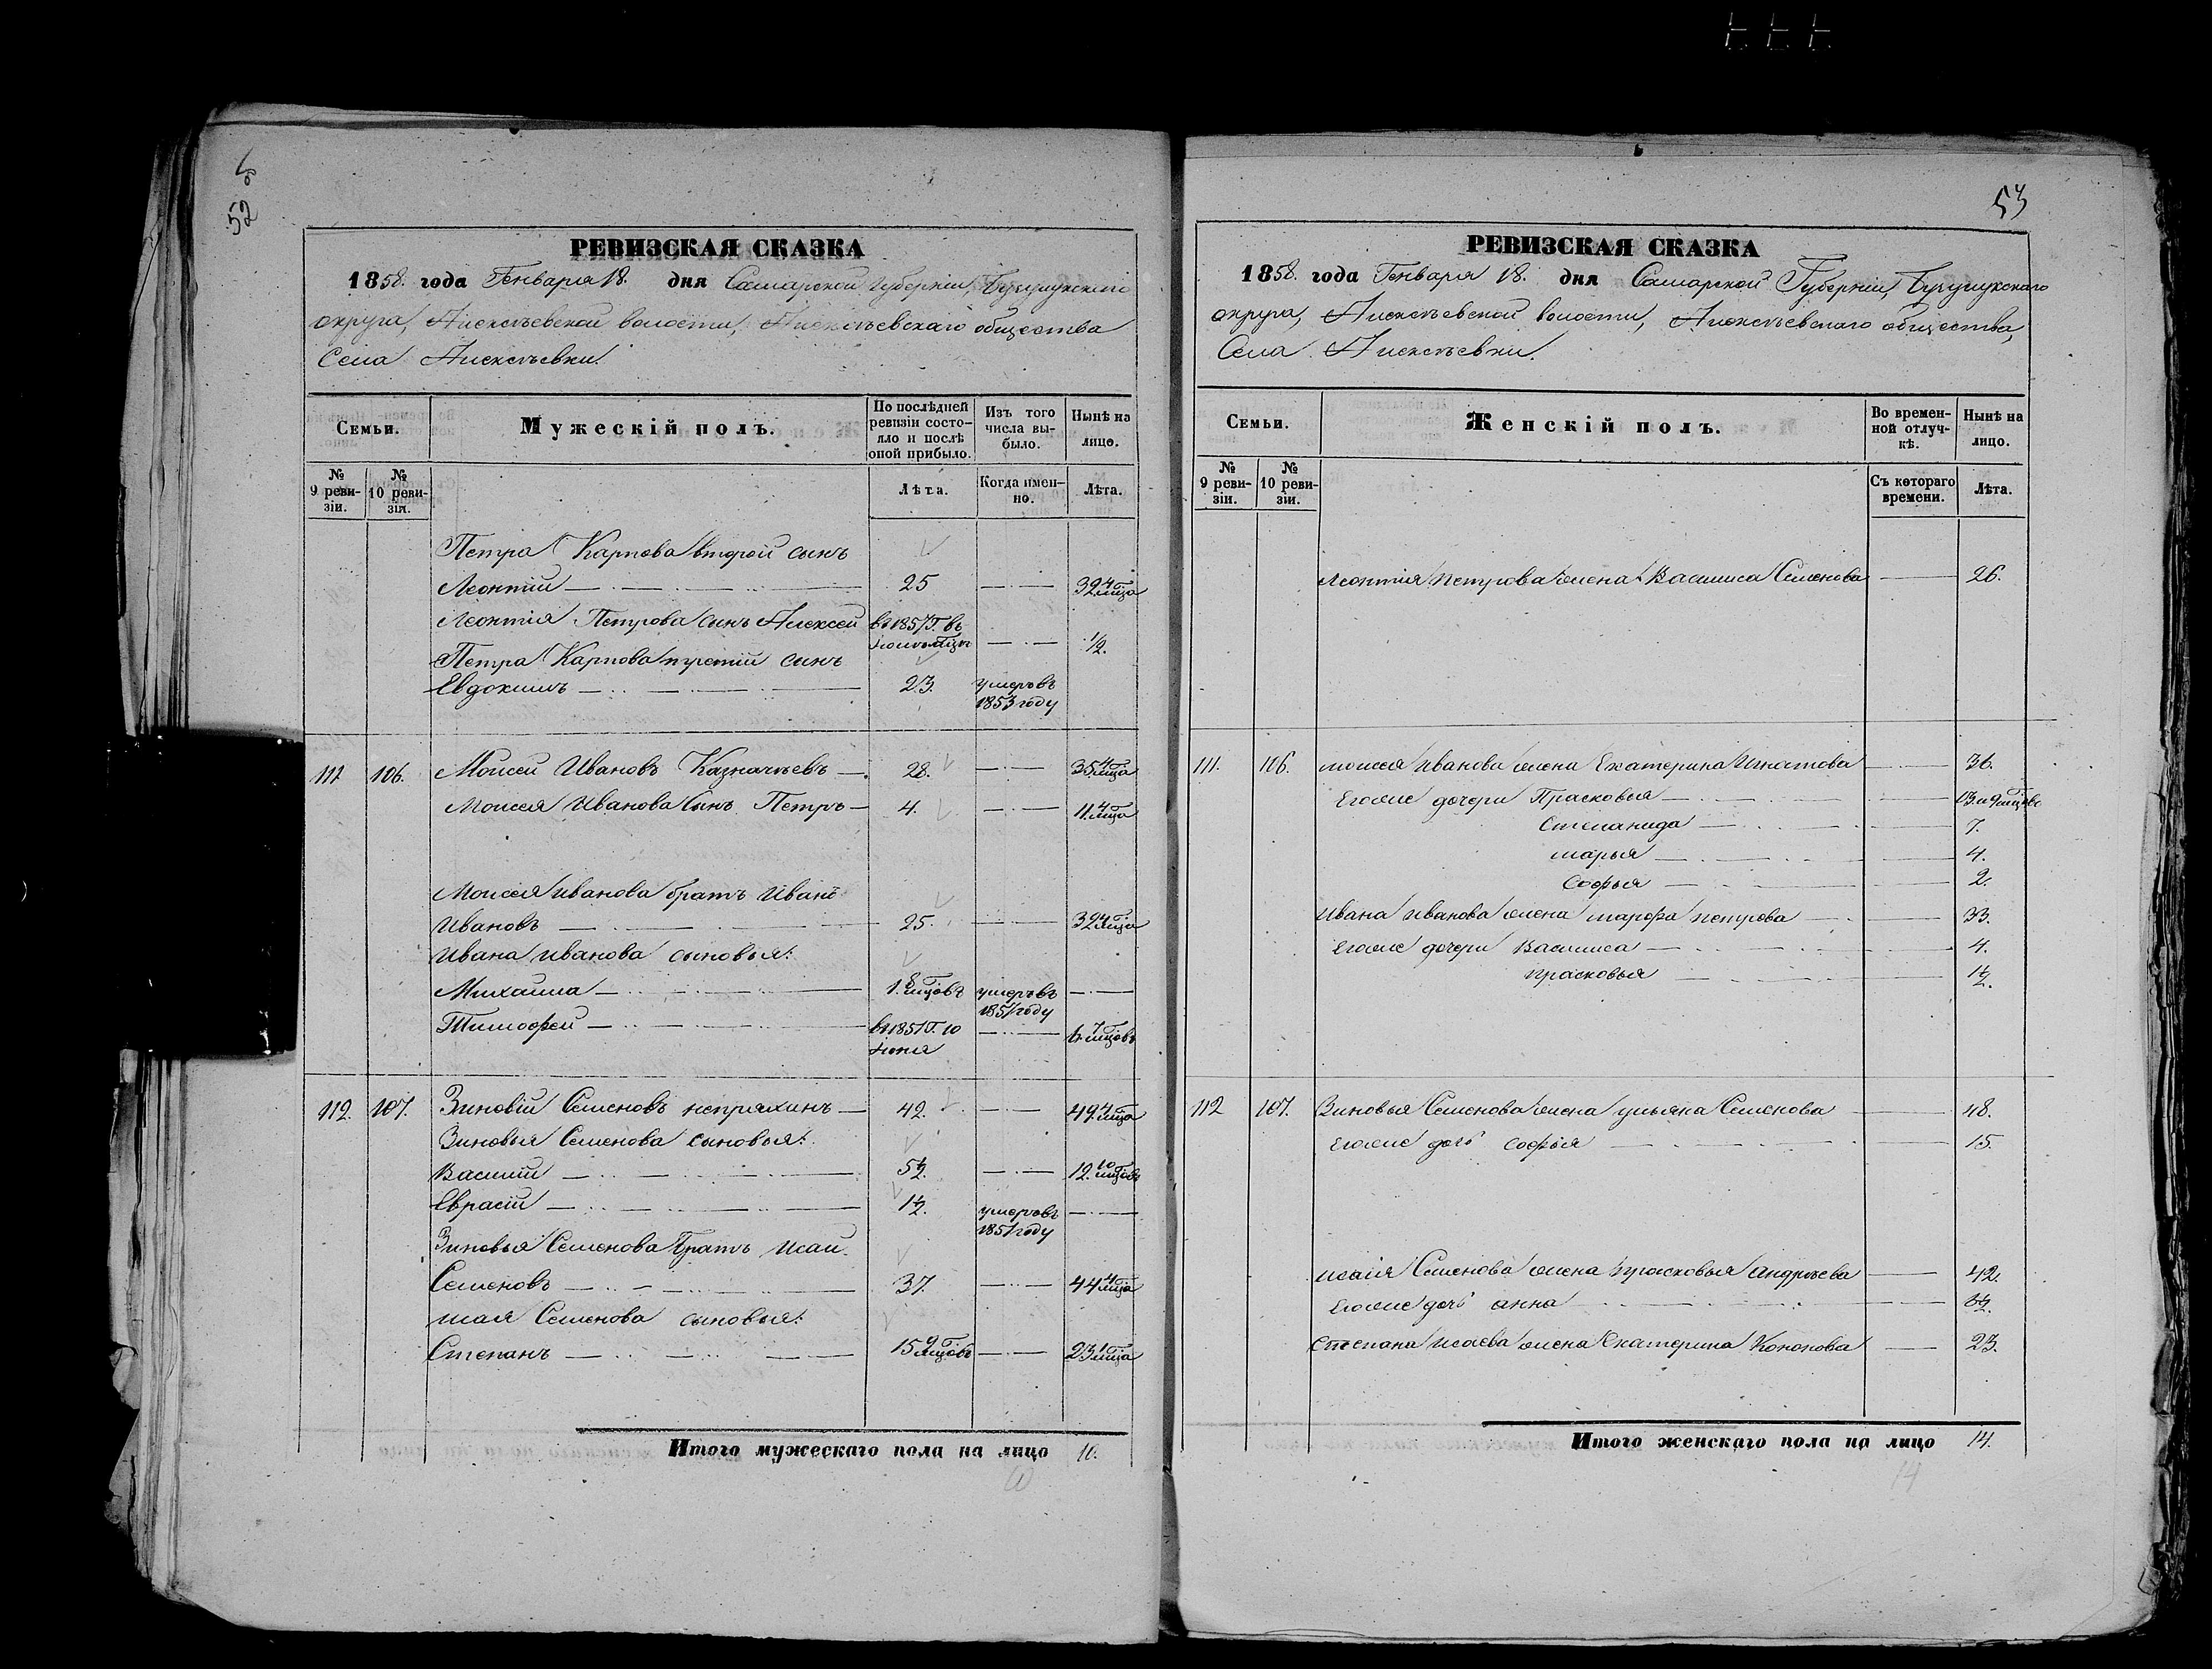 52
РЕВИЗСКАЯ СКАЗКА
1858. года Генваря 18. дня Самарской губерніи, Бузулукскаго
округа, Алексѣевской волости, Алексѣевскаго общества
Села Алексѣевки.
Семьи.
Мужескій полъ.
По послѣдней ревизіи состояло и послѣ оной прибыло.
Изъ того числа выбыло.
Нынѣ на лицо.
№ 9 ревизіи.
№ 10 ревизіи.
Лѣта.
Когда именно.
Лѣта.
Петра Карпова второй сынъ
Леонтій 25 32 4 мца
Леонтія Петрова сынъ Алексей въ 1857 г. въ 1/2.
Петра Карпова третій сынъ
Евдокимъ 23. умеръ въ 1853 году
111 106. Моисей Ивановъ Казначѣевъ 28. 35 4 мца
Моисея Иванова сынъ Петръ 4. 11. 4 мца
Моисея Иванова братъ Иванъ
Ивановъ 25. 32 4 мца
Ивана Иванова сыновья:
Михаила 1. 8 мцовъ умеръ въ 1851 году
Тимофей въ 1851 г. 10 Июня 7 мцовъ
112. 107. Зиновій Семеновъ непряхинъ 42. 49 4 мца
Зиновья Семенова сыновья:
Василій 5 1/2. 12. 10 мцовъ
Еврасій 1 1/2. умеръ въ 1851 году
Зиновья Семенова братъ Исай
Семеновъ 37. 44 4 мца
Исая Семенова сыновья:
Степанъ 15 9 мцовъ 23 1 мца
Итого мужескаго пола на лицо 10.
53
РЕВИЗСКАЯ СКАЗКА
1858. года Генваря 18. дня Самарской Губерніи, Бузулукскаго
округа, Алексѣевской волости, Алексѣевскаго общества,
Села Алексѣевки.
Семьи.
Женскій полъ.
Во временной отлучкѣ.
Нынѣ на лицо.
№ 9 ревизіи.
№ 10 ревизіи.
Съ котораго времени.
Лѣта.
Леонтія Петрова жена Василиса Семенова 26.
111. 106. Моисея Иванова жена Екатерина Игнатова 36.
Егоже дочери Прасковья 13. и 9 мцовъ
Степанида 7.
Марья 4.
Софья 2.
Ивана Иванова жена Марфа Петрова 33.
Егоже дочери Василиса 4.
Прасковья 1 1/2.
112 107. Зиновья Семенова жена ульяна Семенова 48.
Егоже дочь Софья 15.
Исаія Семенова жена Прасковья Андрѣева 42.
Егоже дочь анна
Степана Исаева жена Екатерина Кононова 23.
Итого женскаго пола на лицо 14.
14